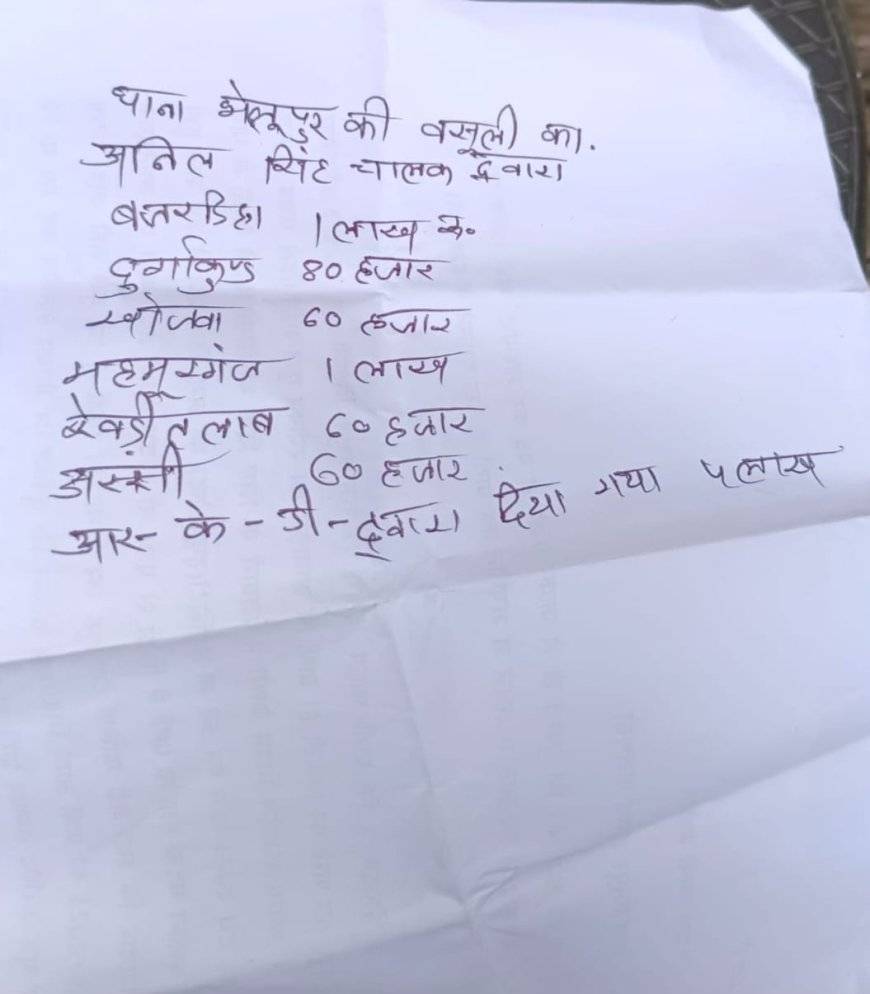 थाना भेलूपुर की वसूली का.
अनिल सिंह चालक द्वारा
बजरडिहा 1 लाख रु॰
दुर्गाकुण्ड 80 हजार
खोजवा 60 हजार
महमूरगंज 1 लाख
रेवड़ी तलाब 60 हजार
अस्सी 60 हजार
आर- के - डी - द्वारा दिया गया 5 लाख